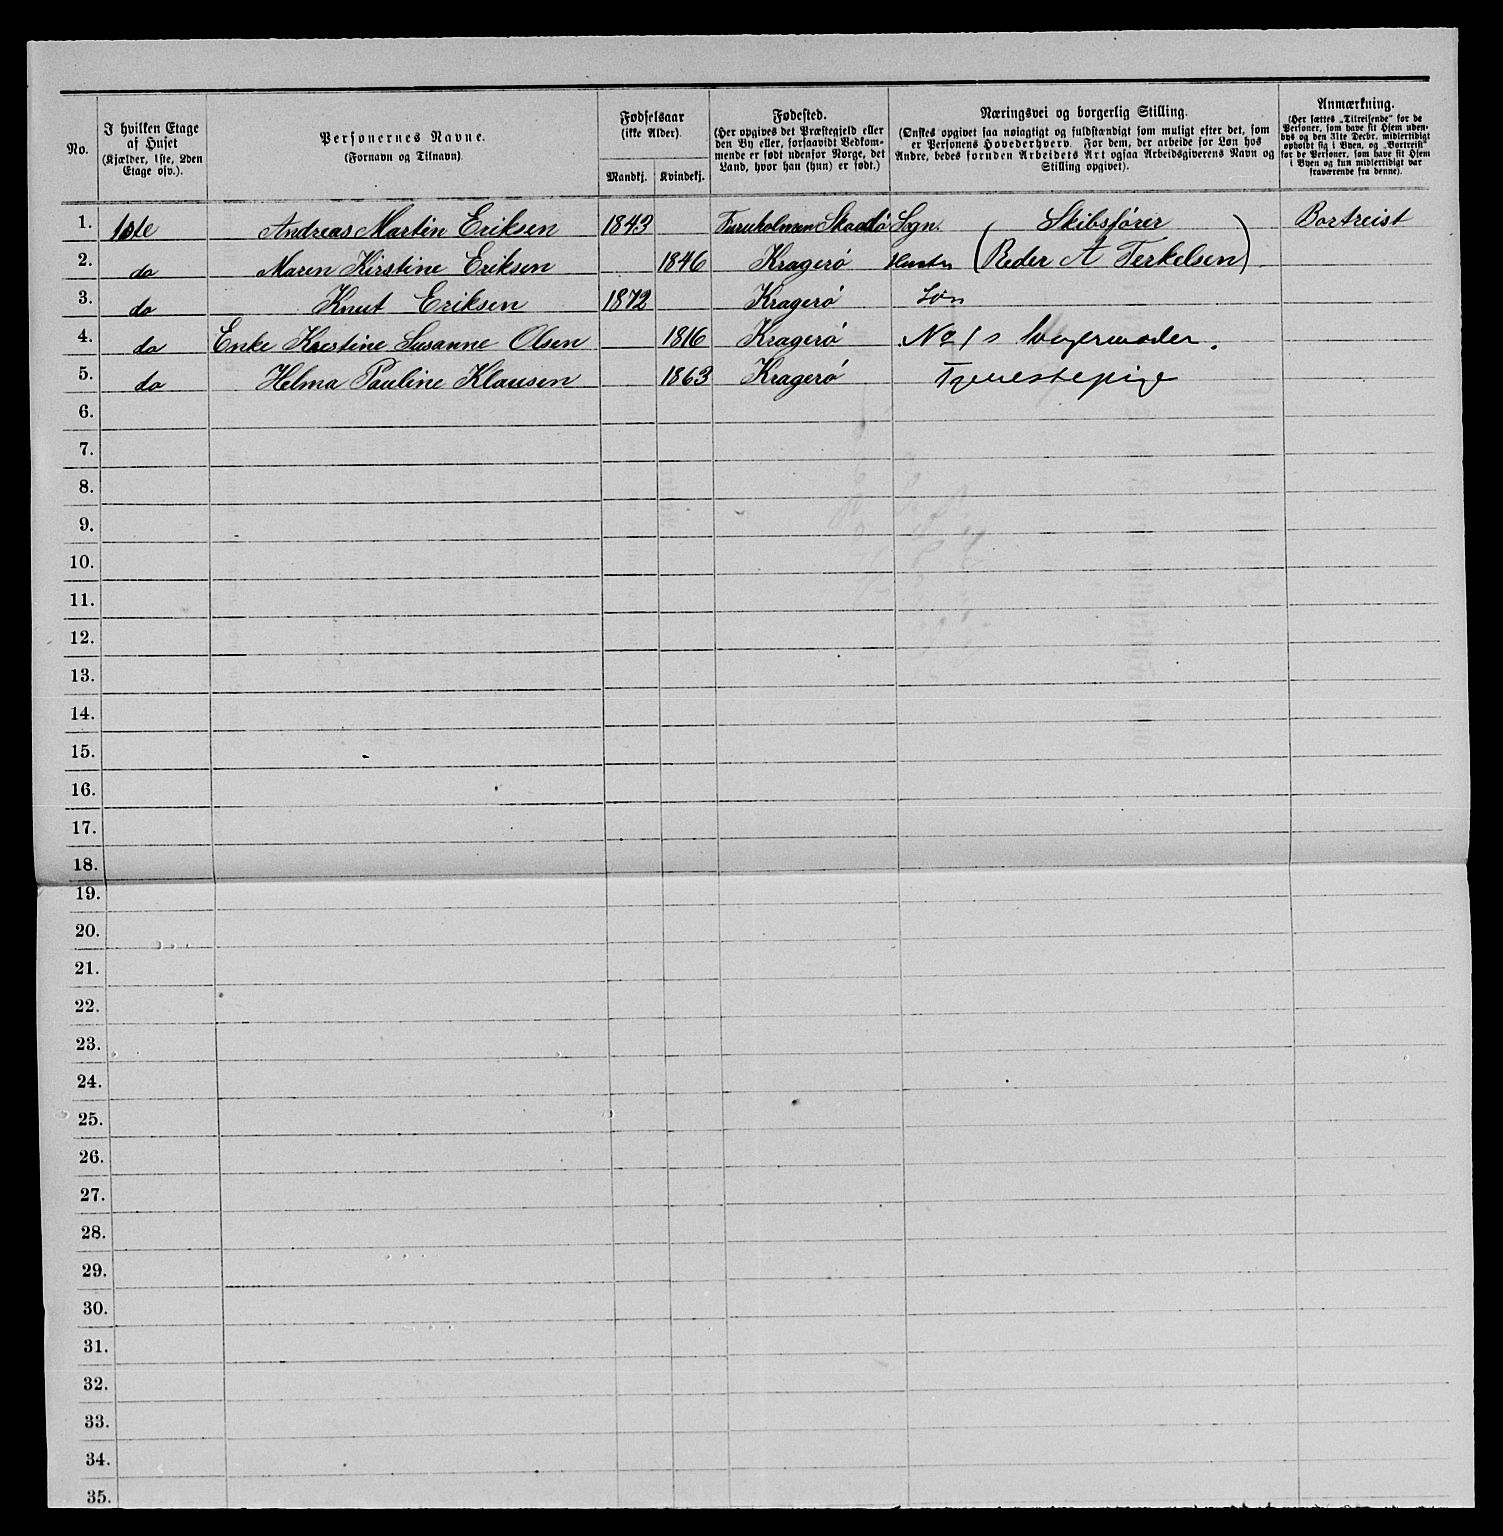 No.
I hvilken Etage
af Huset
(Kjælder, 1ste, 2den
Etage osv.).
Personernes Navne.
(Fornavn og Tilnavn).
Fødselsaar
(ikke Alder).
Mandkj. Kvindekj.
Fødested.
(Her opgives det Præstegjeld eller
den By eller, forsaavidt Vedkom-
mende er født udenfor Norge, det
Land, hvor han (hun) er født.)
Næringsvei og borgerlig Stilling.
(Ønskes opgivet saa nøiagtigt og fuldstændigt som muligt efter det, som
er Personens Hovederhverv. For dem, der arbeide for Løn hos
Andre, bedes foruden Arbeidets Art ogsaa Arbeidsgiverens Navn og
Stilling opgivet).
Anmærkning.
(Her sættes „Tilreisende“ for de
Personer, som have sit Hjem uden-
bys og den 31te Decbr. midlertidigt
opholdt sig i Byen, og „Bortreist“
for de Personer, som have sit Hjem
i Byen og kun midlertidigt var
fraværende fra denne).
1. 1ste Andreas Martin Eriksen 1843 Furuholmen Skaatø Sogn. Skibsfører Bortreist
2. do Maren Kirstine Eriksen 1846 Kragerö Hustru (Reder A Terkelsen)
3. do Knut Eriksen 1872 Kragerö Søn
4. do Enke Kirstine Susanne Olsen 1816 Kragerö No 1s Svigermoder.
5. do Helma Pauline Klausen 1863 Kragerö Tjenestepige
6.
7.
8.
9.
10.
11.
12.
13.
14.
15.
16.
17.
18.
19.
20.
21.
22.
23.
24.
25.
26.
27.
28.
29.
30.
31.
32.
33.
34.
35.